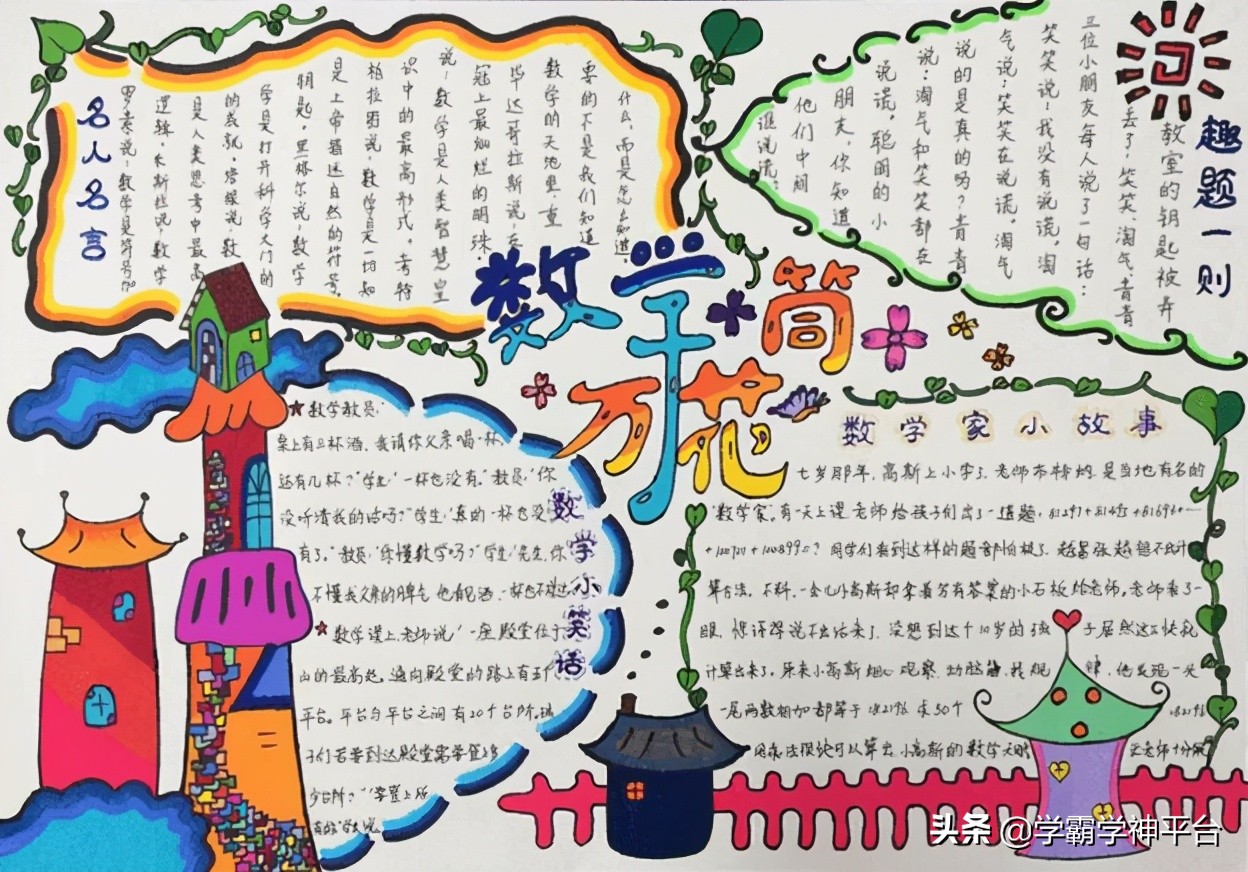 名人名言
罗素说，数学是符号加
逻辑。说，数学
是人类思考中最高
的成就。培根说，数
学是打开科学大门的
钥匙。黑格尔说，数学
是上帝描述自然的符号。
柏拉图说，数学是一切知
识中的最高形式。考特
说：数学是人类智慧皇
冠上最灿烂的明珠
毕达哥拉斯说，在
数学的天地里，重
要的不是我们知道
什么，而是怎么知道
趣题一则
教室的钥匙被弄
丢了，笑笑、淘气、青青
三位小朋友每人说了一句话：
笑笑说：我没有说谎。淘
气说：笑笑在说谎。淘气
说的是真的吗？青青
说：淘气和笑笑都在
说谎。聪明的小
朋友，你知道
他们中间
谁说谎？
数学万花筒
数学小笑话
★数学教员：
桌上有五杯酒，我请你父亲喝一杯，
还有几杯？"学生："一杯也没有。"教员："你
没听清我的话吗？"学生："真的一杯也没
有了。"教员："你懂数学吗？"学生："先生，你
不懂我父亲的脾气，他看见酒，一杯也不
★数学课上，老师说："一座殿堂位于
山的最高处。通向殿堂的路上有五个
平台。平台与平台之间有20个台阶。孩
子们若要到达殿堂需要登上多
少台阶？""要登上所
有的台阶
数学家小故事
七岁那年，高斯上小学了。老师布特纳，是当地有名的
"数学家"。有一天上课老师给孩子们出了一道题，81297+81495+81693+…
+100701+100899=？同学们看到这样的题都怕极了，越紧张越想不出计
算方法。不料，一会儿小高斯却拿着写有答案的小石板给老师。老师看了一
眼，惊讶得说不出话来了。没想到这个10岁的孩子居然这么快就
计算出来了。原来小高斯细心观察，动脑筋，找规律，他发现一头
一尾两数相加都等于182196 求50个182196
用乘法很快可以算出。小高斯的数学老师十分
头条 @学霸学神平台